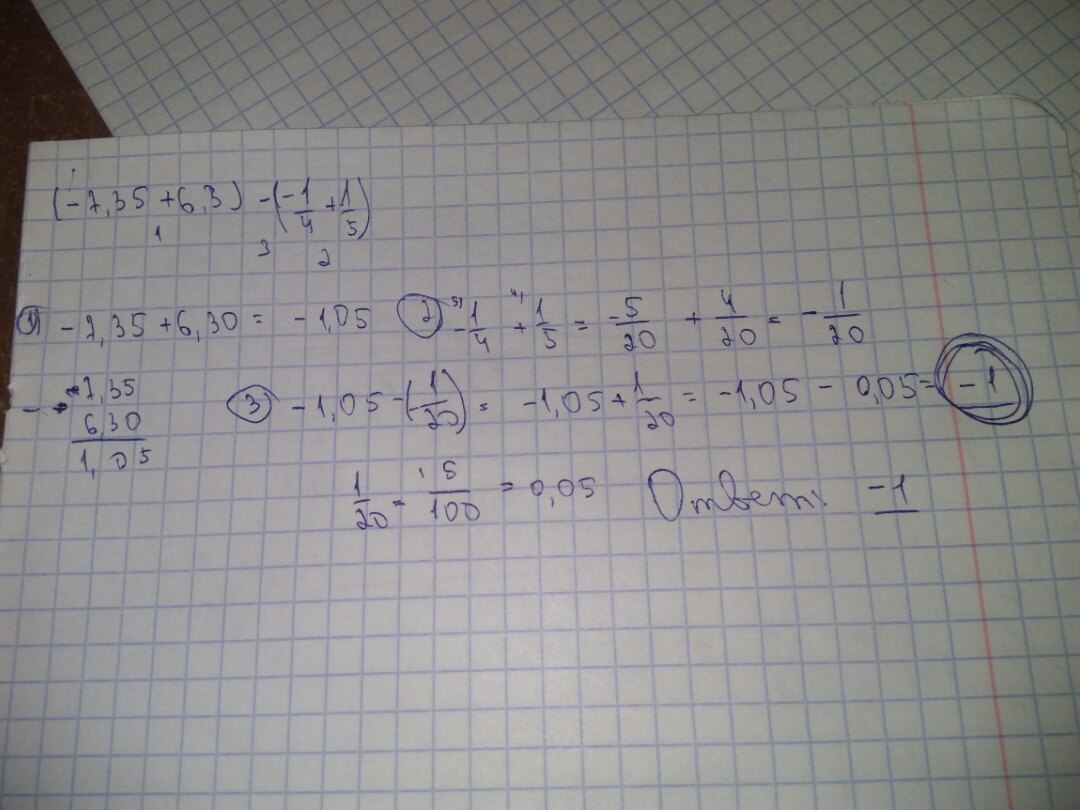 (-7,35 + 6,3) - (-1/4 + 1/5)
1 3 2
1) -7,35 + 6,30 = -1,05 2) -1/4 + 1/5 = -5/20 + 4/20 = -1/20
- 7,35
6,30
1,05
3 -1,05 - (-1/20) = -1,05 + 1/20 = -1,05 - 0,05 = -1
1/20 = 5/100 = 0,05 Ответ: -1